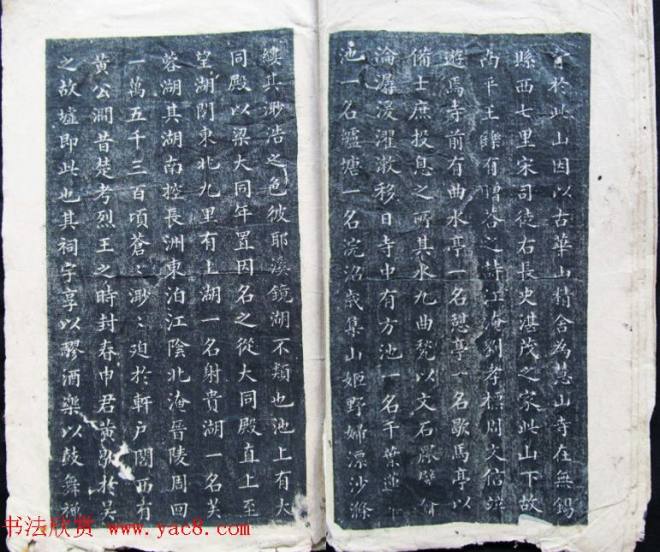 於此山因以古華山精舍為慧山寺在無錫
縣西七里宋司徒右長史湛茂之家此山下故
南平王鑠有贈答之詩江淹劉孝標周文信並
遊焉寺前有曲水亭一名憩亭一名歇馬亭以
備士庶投息之所其水九曲甃以文石
淪潺湲濯漱移日寺中有方池一名千葉蓮
池一名纑塘一名浣沼歲集山姬野婦漂沙滌
縷其渺浩之色彼耶溪鏡湖不類也池上有大
同殿以梁大同年置因名之從大同殿直上至
望湖閣東北九里有上湖一名射貴湖一名芙
蓉湖其湖南控長洲東泊江陰北淹晉陵周回
一萬五千三百頃蒼〻渺〻迫於軒戶閣西有
黃公澗昔楚考烈王之時封春申君黃歇於吳
之故墟即此也其祠宇享以醪酒樂以鼓舞禪
书法欣赏 www.yac8.com